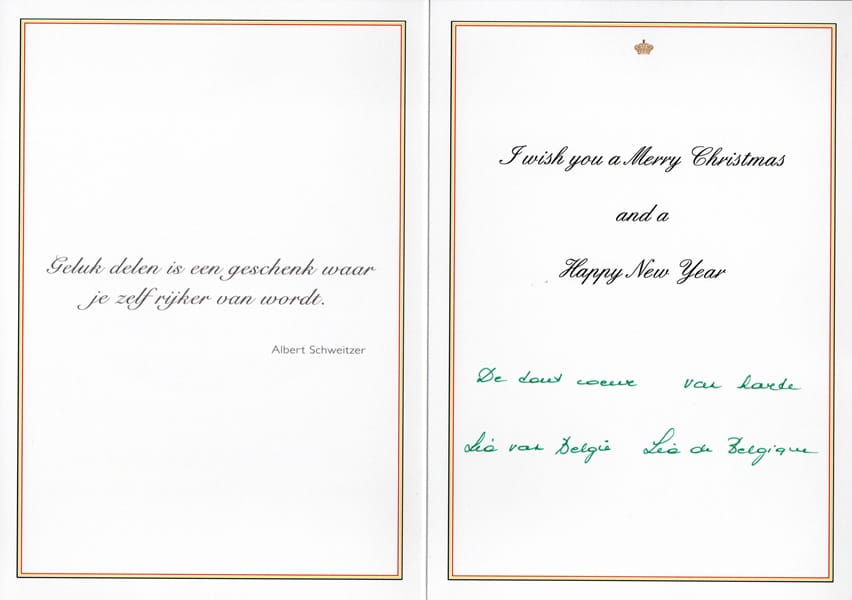 Geluk delen is een geschenk waar
je zelf rijker van wordt.
Albert Schweitzer
I wish you a Merry Christmas
and a
Happy New Year
De tout coeur van harte
Léa van België Léa de Belgique